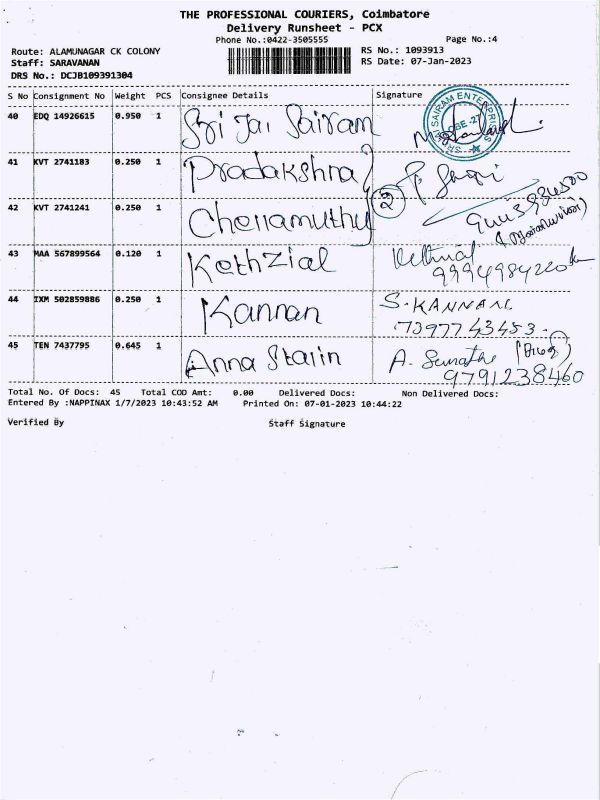 THE PROFESSIONAL COURIERS, Coimbatore
Delivery Runsheet - PCX
Phone No.:0422-3505555 Page No.:4
Route: ALAMUNAGAR CK COLONY RS No.: 1093913
Staff: SARAVANAN RS Date: 07-Jan-2023
DRS No.: DCJB109391304
S No Consignment No Weight PCS Consignee Details Signature
40 EDQ 14926615 0.950 1 Sri Jai Sairam
41 KVT 2741183 0.250 1 Pradakshna
42 KVT 2741241 0.250 1 Chellamuthu 2
43 MAA 567899564 0.120 1 Kethzial
9994984220
44 IXM 502859886 0.250 1 Kannan S. KANNAN
7397743453
45 TEN 7437795 0.645 1 Anna Stalin A.
9791238460
Total No. Of Docs: 45 Total COD Amt: 0.00 Delivered Docs: Non Delivered Docs:
Entered By :NAPPINAX 1/7/2023 10:43:52 AM Printed On: 07-01-2023 10:44:22
Verified By Staff Signature